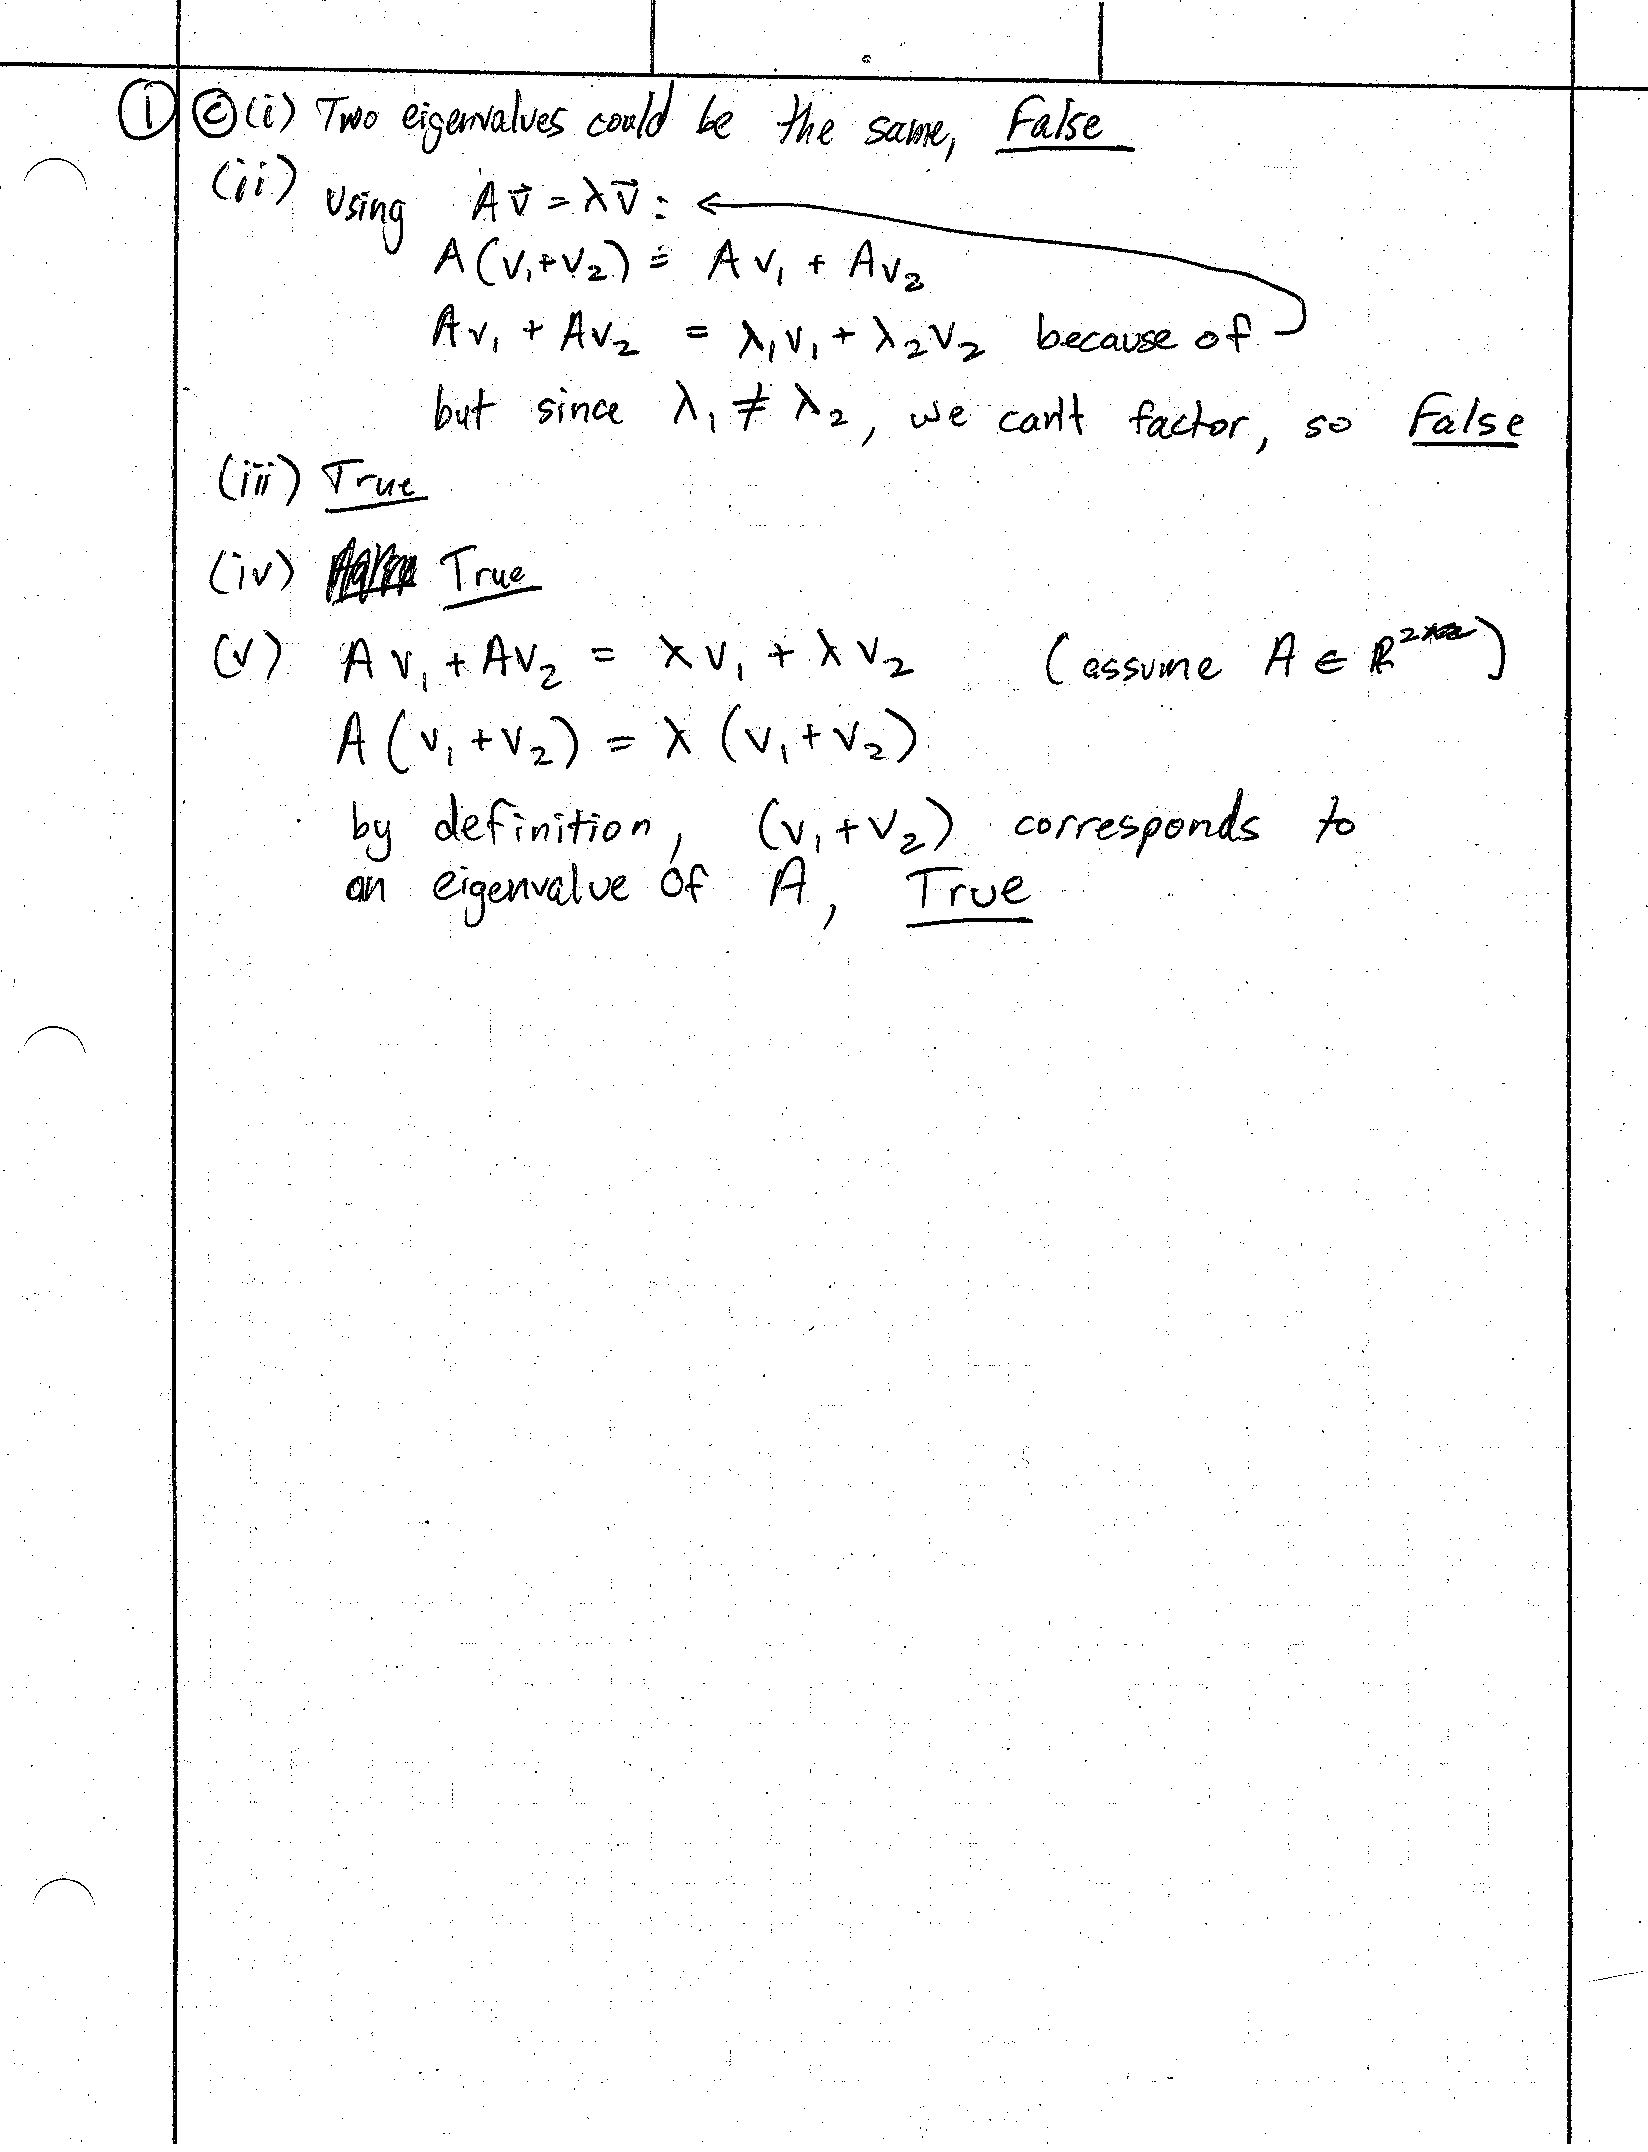 ① ⓒ (i) Two eigenvalues could be the same, False
(ii) Using Av⃗ = λv⃗ :
A(v₁+v₂) = Av₁ + Av₂
Av₁ + Av₂ = λ₁v₁ + λ₂v₂ because of
but since λ₁ ≠ λ₂, we can't factor, so False
(iii) True
(iv) True
(v) Av₁ + Av₂ = λv₁ + λv₂ (assume A ∈ ℝ²ˣ²)
A(v₁+v₂) = λ(v₁+v₂)
by definition, (v₁+v₂) corresponds to
an eigenvalue of A, True